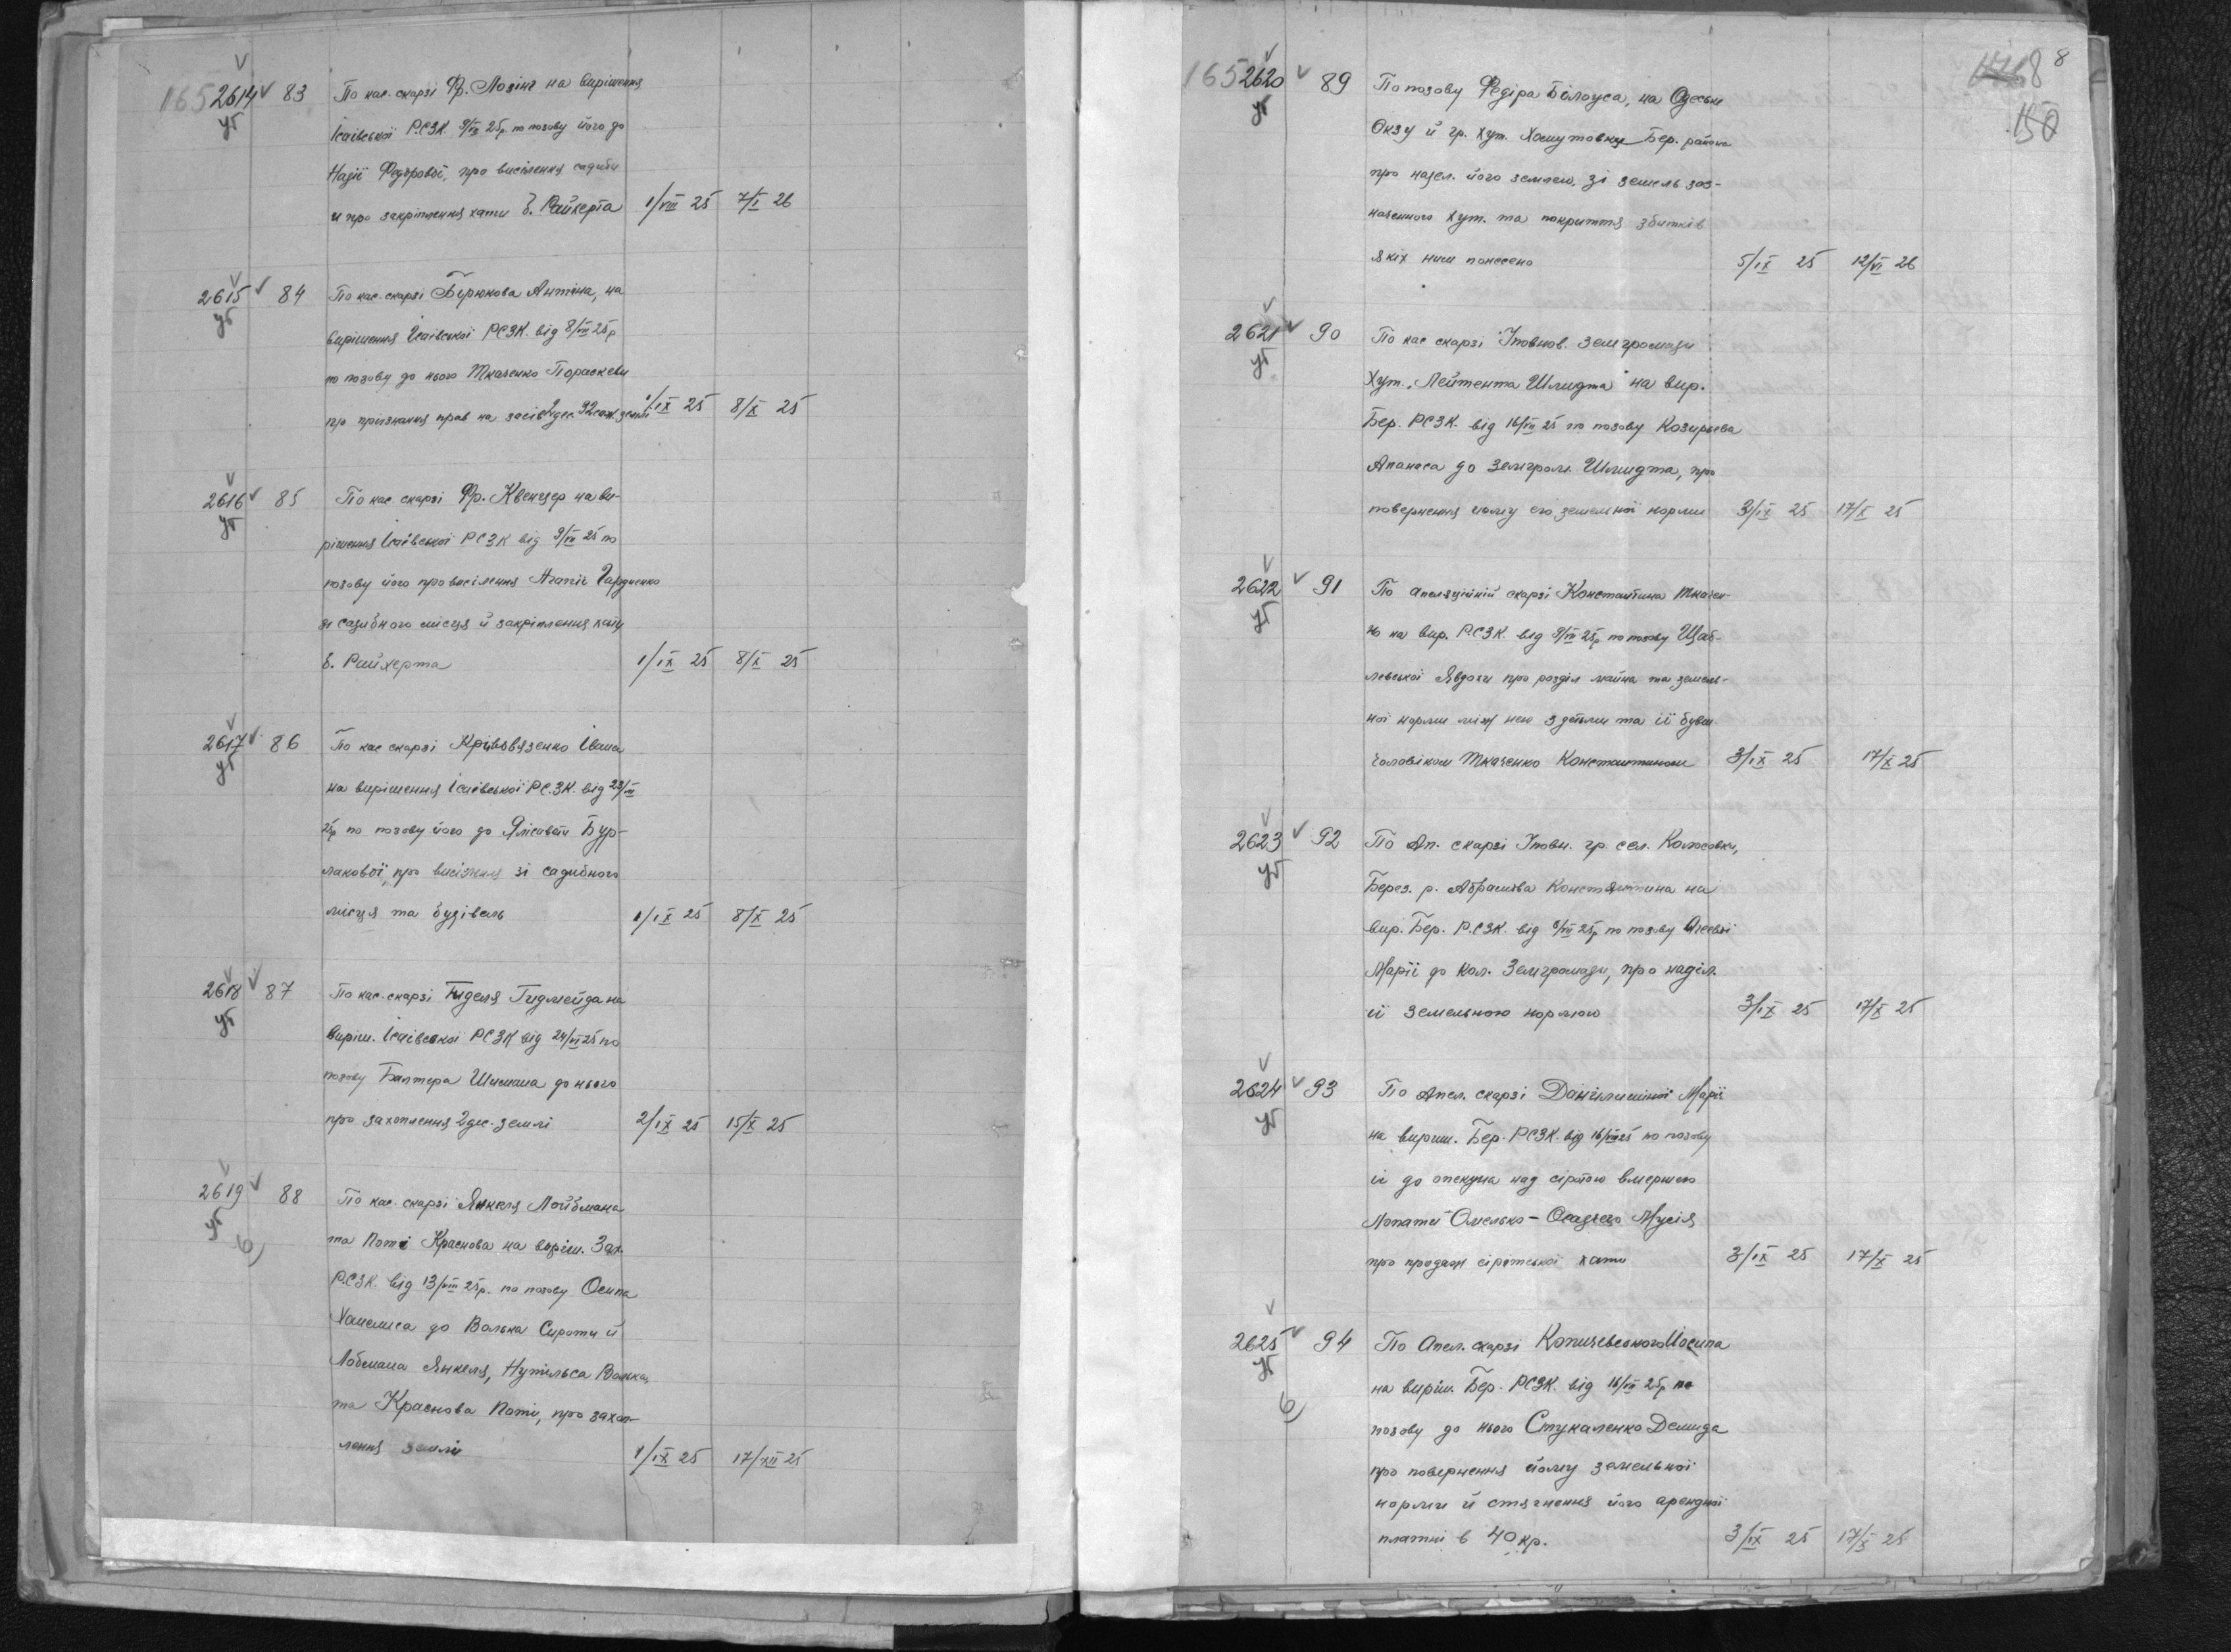 165 2614 83 По кас. скарзі Фр. Лозінг на вирішення
уб Ісаівської Р.С.З.К. 9/VII 25р. по позову його до
Надії Федорової, про виселення садиби
и про закріплення хати б. Райхерта 1/VIII 25 7/I 26
2615 84 По кас. скарзі Бірюкова Антіна, на
уб вирішення Ісаівської РСЗК. від 8/VII 25р
по позову до нього Ткаченко Параскеви
про прізнання прав на засів 2 дес. 92 саж. землі 1/IX 25 8/X 25
2616 85 По кас. скарзі Фр. Квенцер на ви-
уб рішення Ісаівської РСЗК від 9/VII 25 по
позову його про висілення Агапіі
зі садибного місця й закріплення хати
б. Райхерта 1/IX 25 8/X 25
2617 86 По кас скарзі Крівовязенко Івана
уб на вирішення Ісаівської РС.ЗК. від 23/VII
25р по позову його до Ялісавети Бур-
лакової, про висілення зі садибного
місця та будівель 1/IX 25 8/X 25
2618 87 По кас. скарзі Гиделя Гидмейда на
уб виріш. Ісаівської РСЗК від 24/VII 25 по
позову Балтера Шимана до нього
про захоплення 2 дес. землі 2/IX 25 15/X 25
2619 88 По кас. скарзі Янкеля Лойбмана
уб та Поті Краснова на виріш. Зах.
б) Р.СЗК. від 13/VIII 25р. по позову Осипа
Хаимиса до Волька Сироти й
Лобмана Янкеля, Нутільса Волька,
та Краснова Поті, про захоп-
лення землі 1/IX 25 17/XII 25
8
8
150
165 2620 89 По позову Федіра Білоуса, на Одеське
уб Окзу й гр. хут. Хомутовку Бер. района
про надел. його землею, зі земель заз-
наченного хут. та покриття збитків
якіх ним понесено 5/IX 25 12/VI 26
2621 90 По кас скарзі Уповнов. земгромади
уб хут. "Лейтента Шмидта" на вир.
Бер. РСЗК. від 16/VII 25 по позову Козирьева
Апанаса до земгром. Шмидта, про
повернення йому его земельної норми 3/IX 25 17/X 25
2622 91 По апеляційній скарзі Константина Ткачен-
уб ко на вир. Р.СЗК. від 9/VII 25р по позову Щаб-
левської Явдохи про розділ майна та земель-
ної норми між нею з дітьми та ії бувш
чоловіком Ткаченко Константином 3/IX 25 17/X 25
2623 92 По Ап. скарзі Уповн. гр. сел.
уб Берез. р. Абрамова Константина на
вир. Бер. Р.СЗК. від 6/VII 25р по позову
Марії до Кол. Земгромади, про наділ.
ії земельною нормою 3/IX 25 17/X 25
2624 93 По Апел. скарзі Данілишиної Марії
уб на вириш. Бер. РСЗК. від 16/VII 25 по позову
ії до опекуна над сіротою вмершего
Лопати Омелько – Осадчего Мусія
про продаж сіротської хати 3/IX 25 17/X 25
2625 94 По Апел. скарзі Копичевського Йосипа
уб на виріш. Бер. РСЗК. від 16/VII 25р по
б) позову до нього Стукаленко Демида
про повернення йому земельної
норми й стягнення його арендної
платні в 40 кр. 3/IX 25 17/X 25